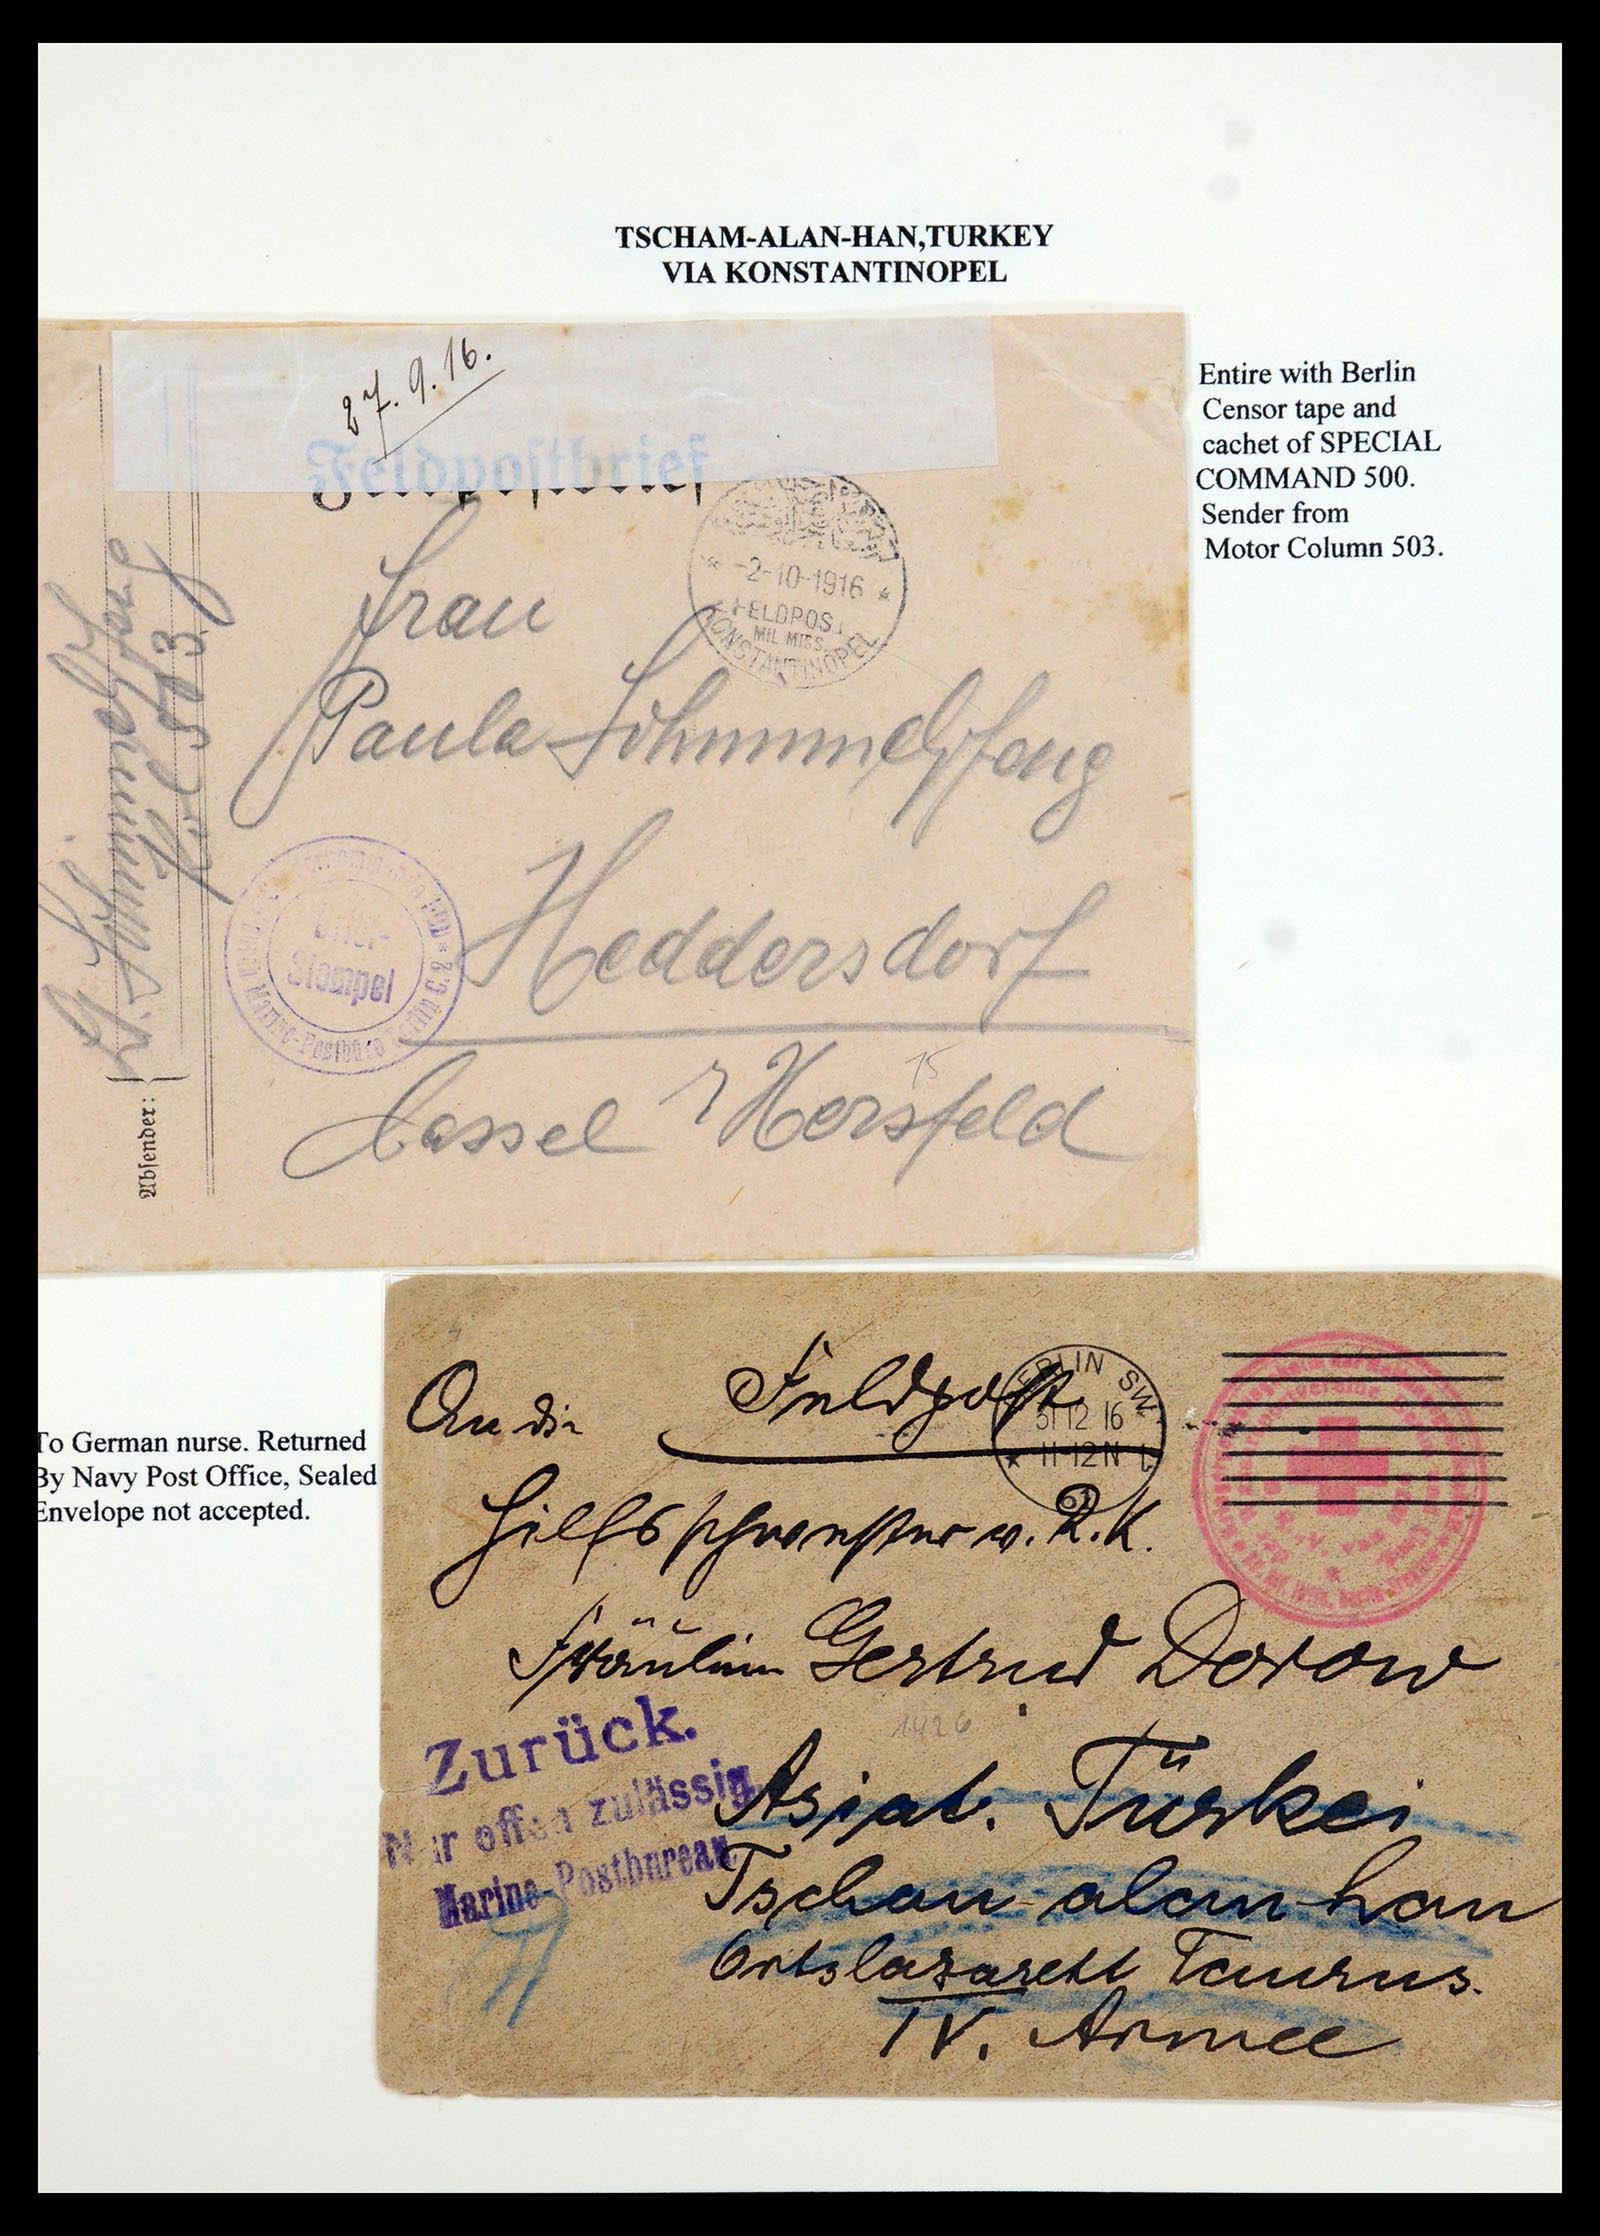 TSCHAM-ALAN-HAN,TURKEY
VIA KONSTANTINOPEL
27. 9. 16.
Feldpostbrief
-2-10-1916
FELDPOST
MIL. MISS.
KONSTANTINOPEL
Frau
Paula
Heddersdorf
Cassel Hersfeld
15
503
Absender:
Brief-
Stempel
Marine-Postbüro Berlin C.2
Entire with Berlin
Censor tape and
cachet of SPECIAL
COMMAND 500.
Sender from
Motor Column 503.
To German nurse. Returned
By Navy Post Office, Sealed
Envelope not accepted.
An die Feldpost
BERLIN SW
31 12 16
11-12 N
Hilfsschwester v. R. K.
Fräulein Gertrud Dorow
1426
Zurück.
Nur offen zulässig.
Marine-Postbureau
Asiat. Türkei
Tschau alan han
Ortslazarett Taurus.
IV. Armee